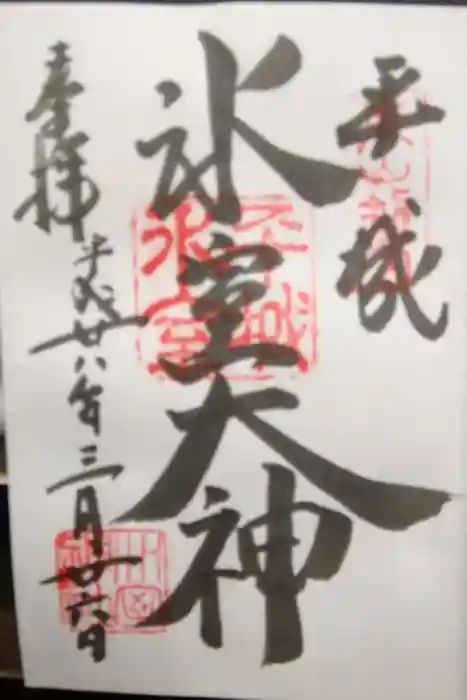 平城
氷室大神
奉拝
平成廿八年三月廿六日
平城
氷室